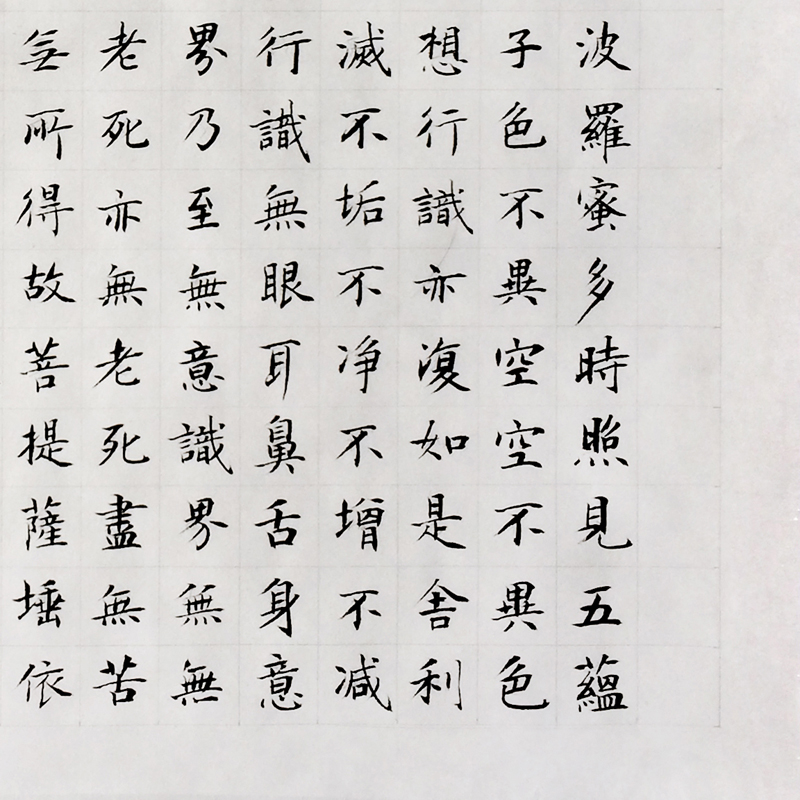 波羅蜜多時照見五蘊
子色不異空空不異色
想行識亦復如是舍利
滅不垢不净不增不减
行識無眼耳鼻舌身意
界乃至無意識界無無
老死亦無老死盡無苦
無所得故菩提薩埵依